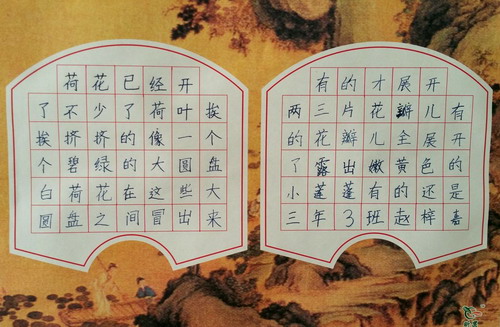 荷花已经开
了不少了荷叶挨
挨挤挤的像一个
个碧绿的大圆盘
白荷花在这些大
圆盘之间冒出来
有的才展开
两三片花瓣儿有
的花瓣儿全展开
了露出嫩黄色的
小莲蓬有的还是
三年3班赵梓嘉